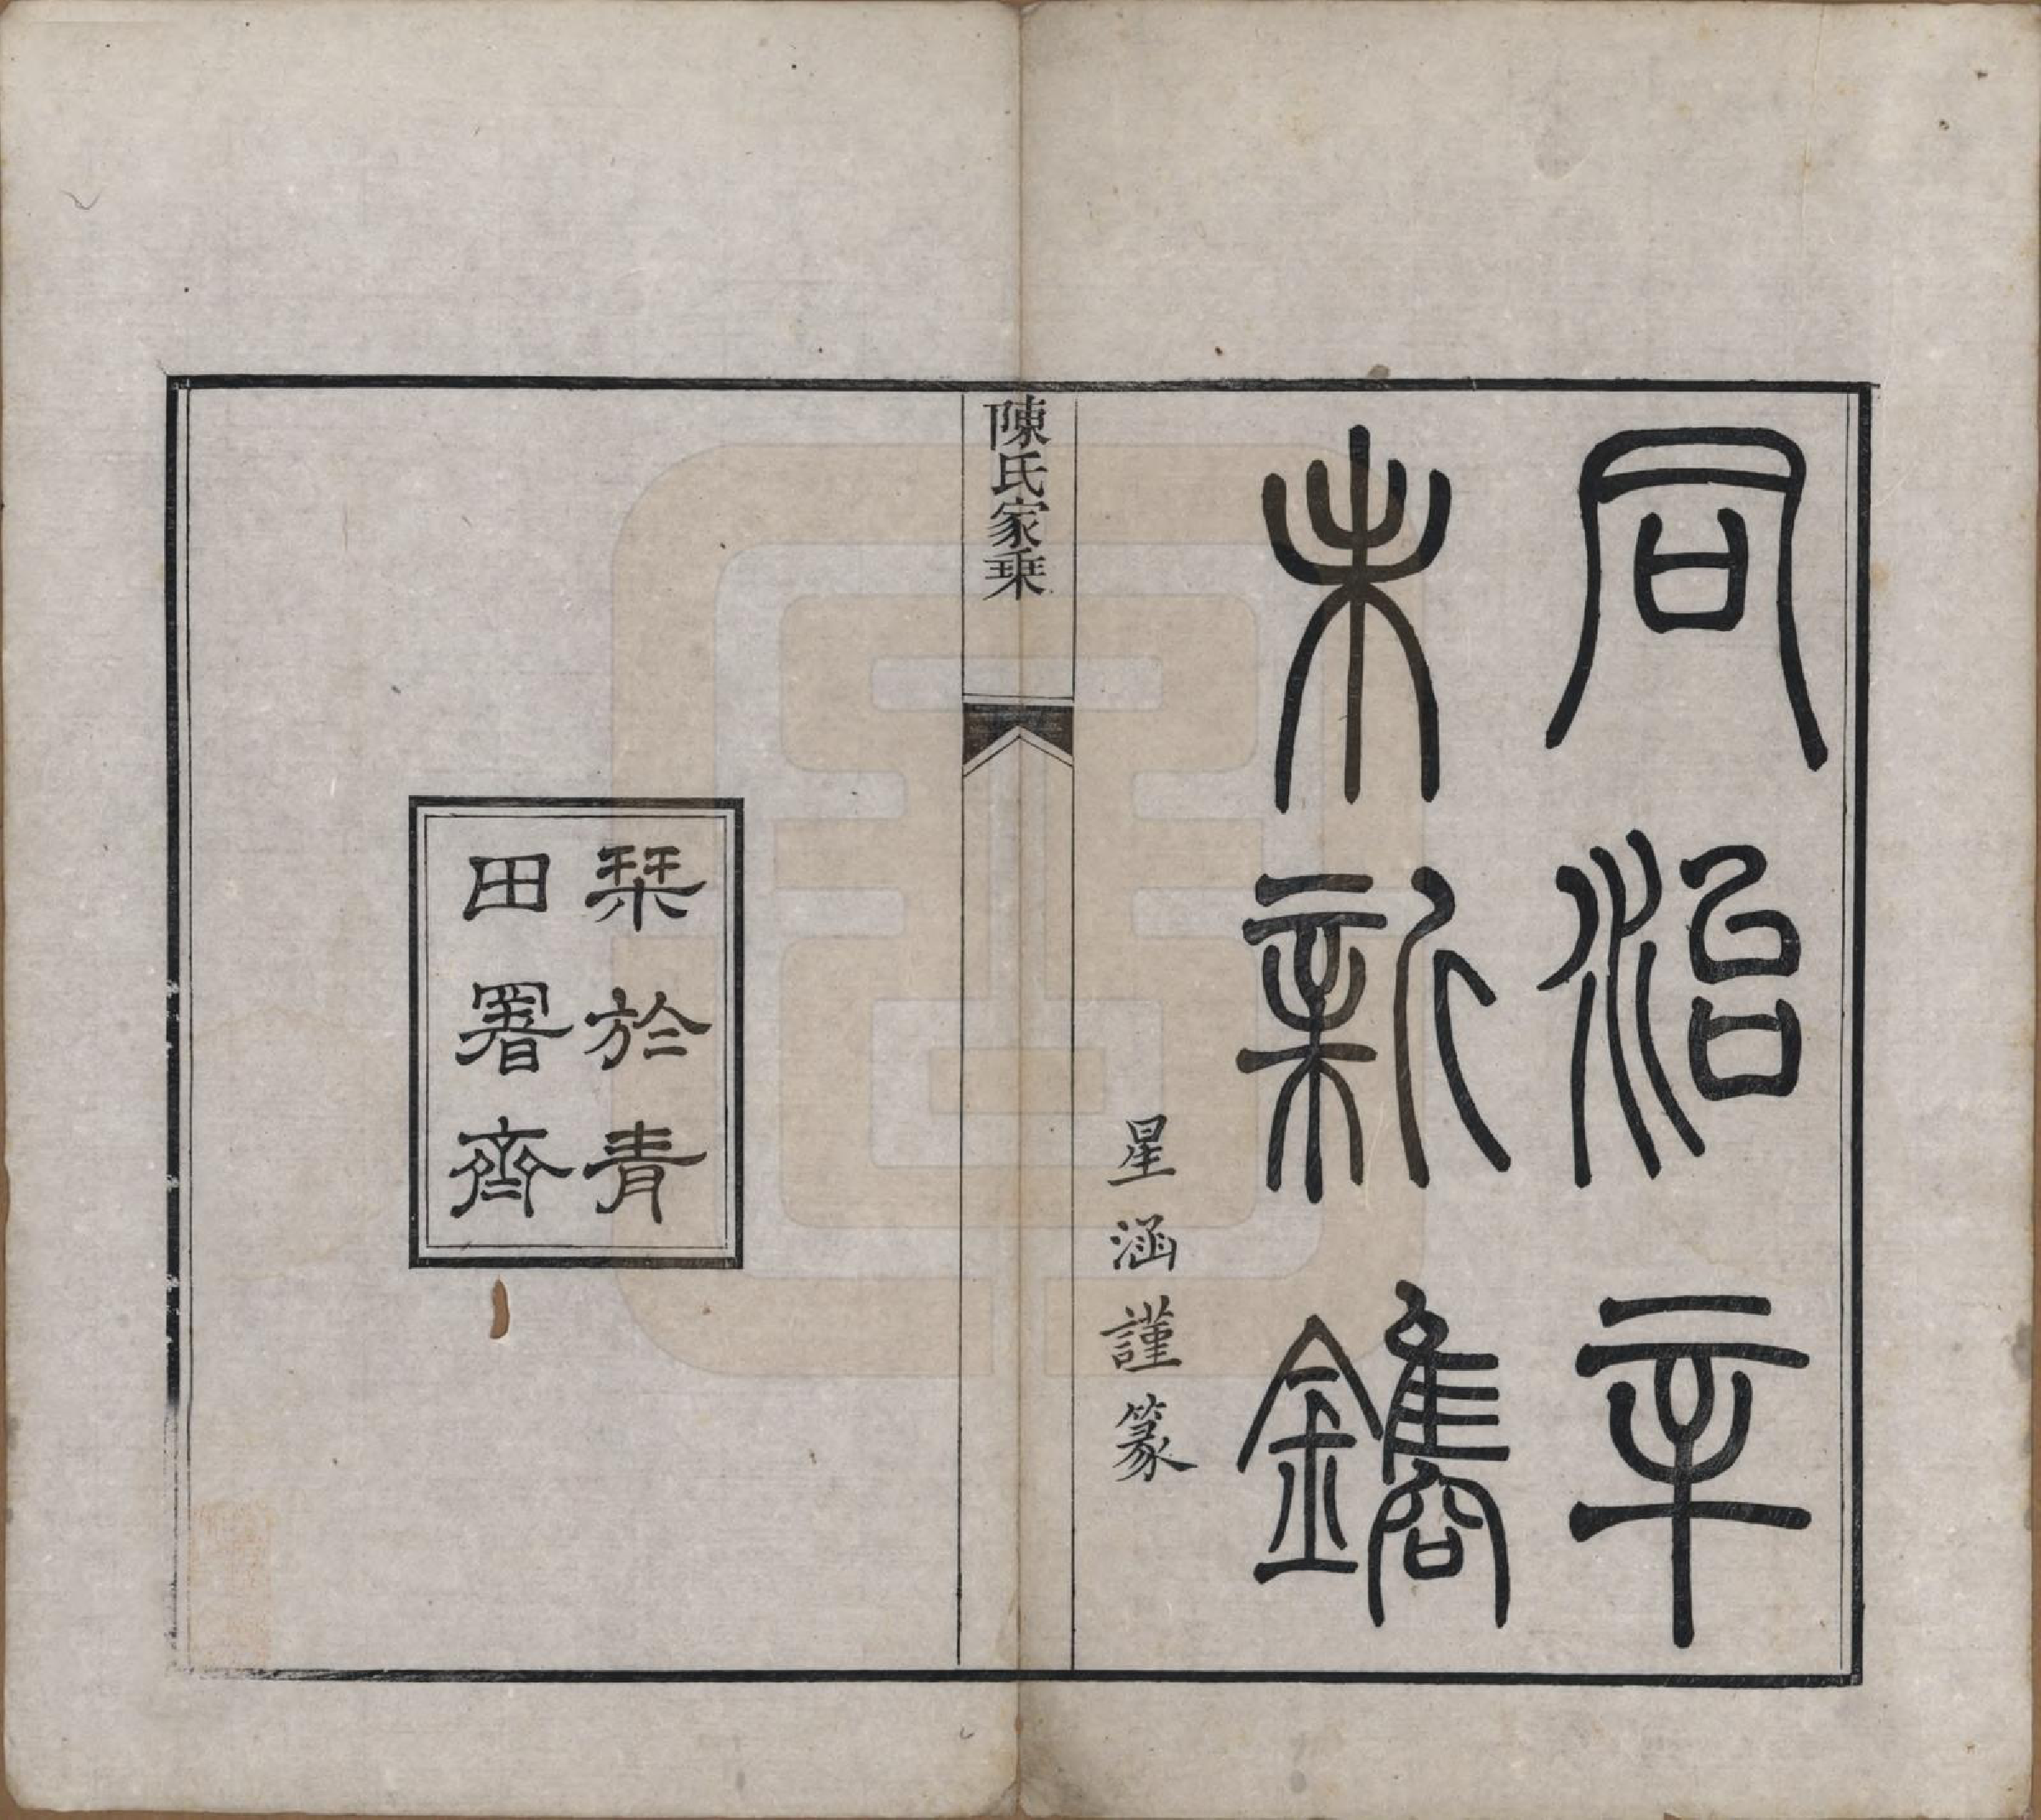 同治辛
未新鐫
星涵謹篆
陳氏家乗
栞於青
田署齊